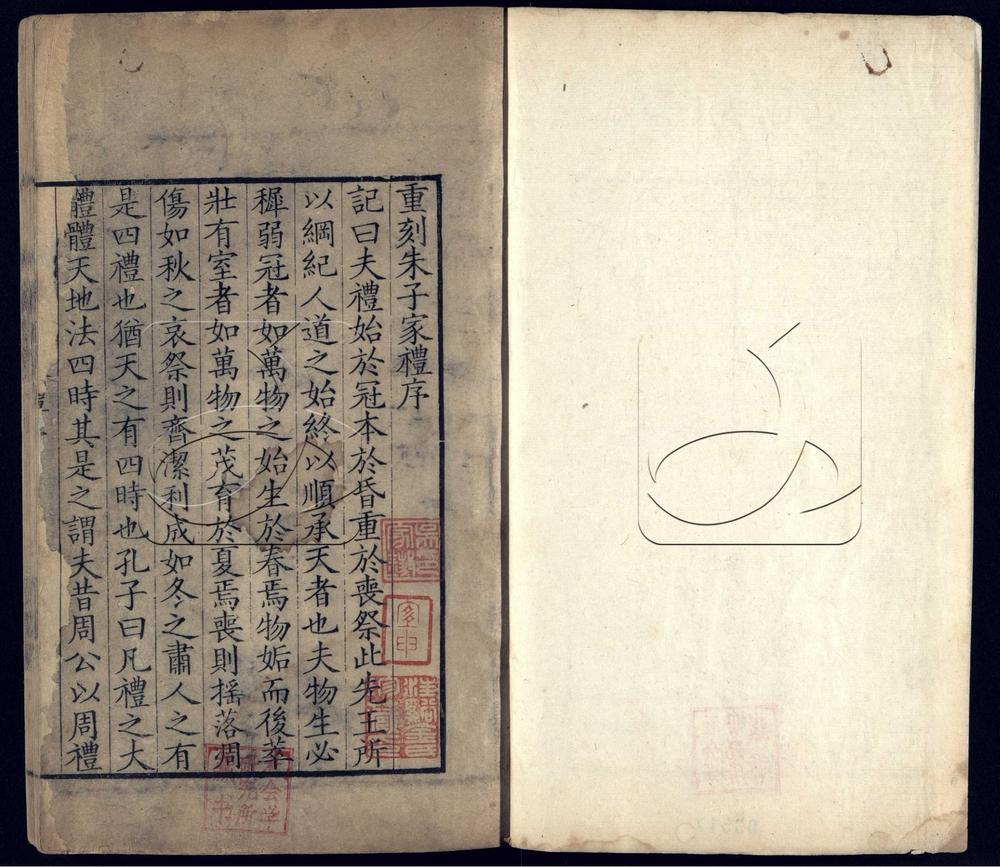 重刻朱子家禮序
記曰夫禮始於冠本於昏重於喪祭此先王所
以綱紀人道之始終以順承天者也夫物生必
穉弱冠者如萬物之始生於春焉物姤而後萃
壯有室者如萬物之茂育於夏焉喪則揺落凋
傷如秋之哀祭則齊潔利成如冬之肅人之有
是四禮也猶天之有四時也孔子曰凡禮之大
體體天地法四時其是之謂夫昔周公以周禮